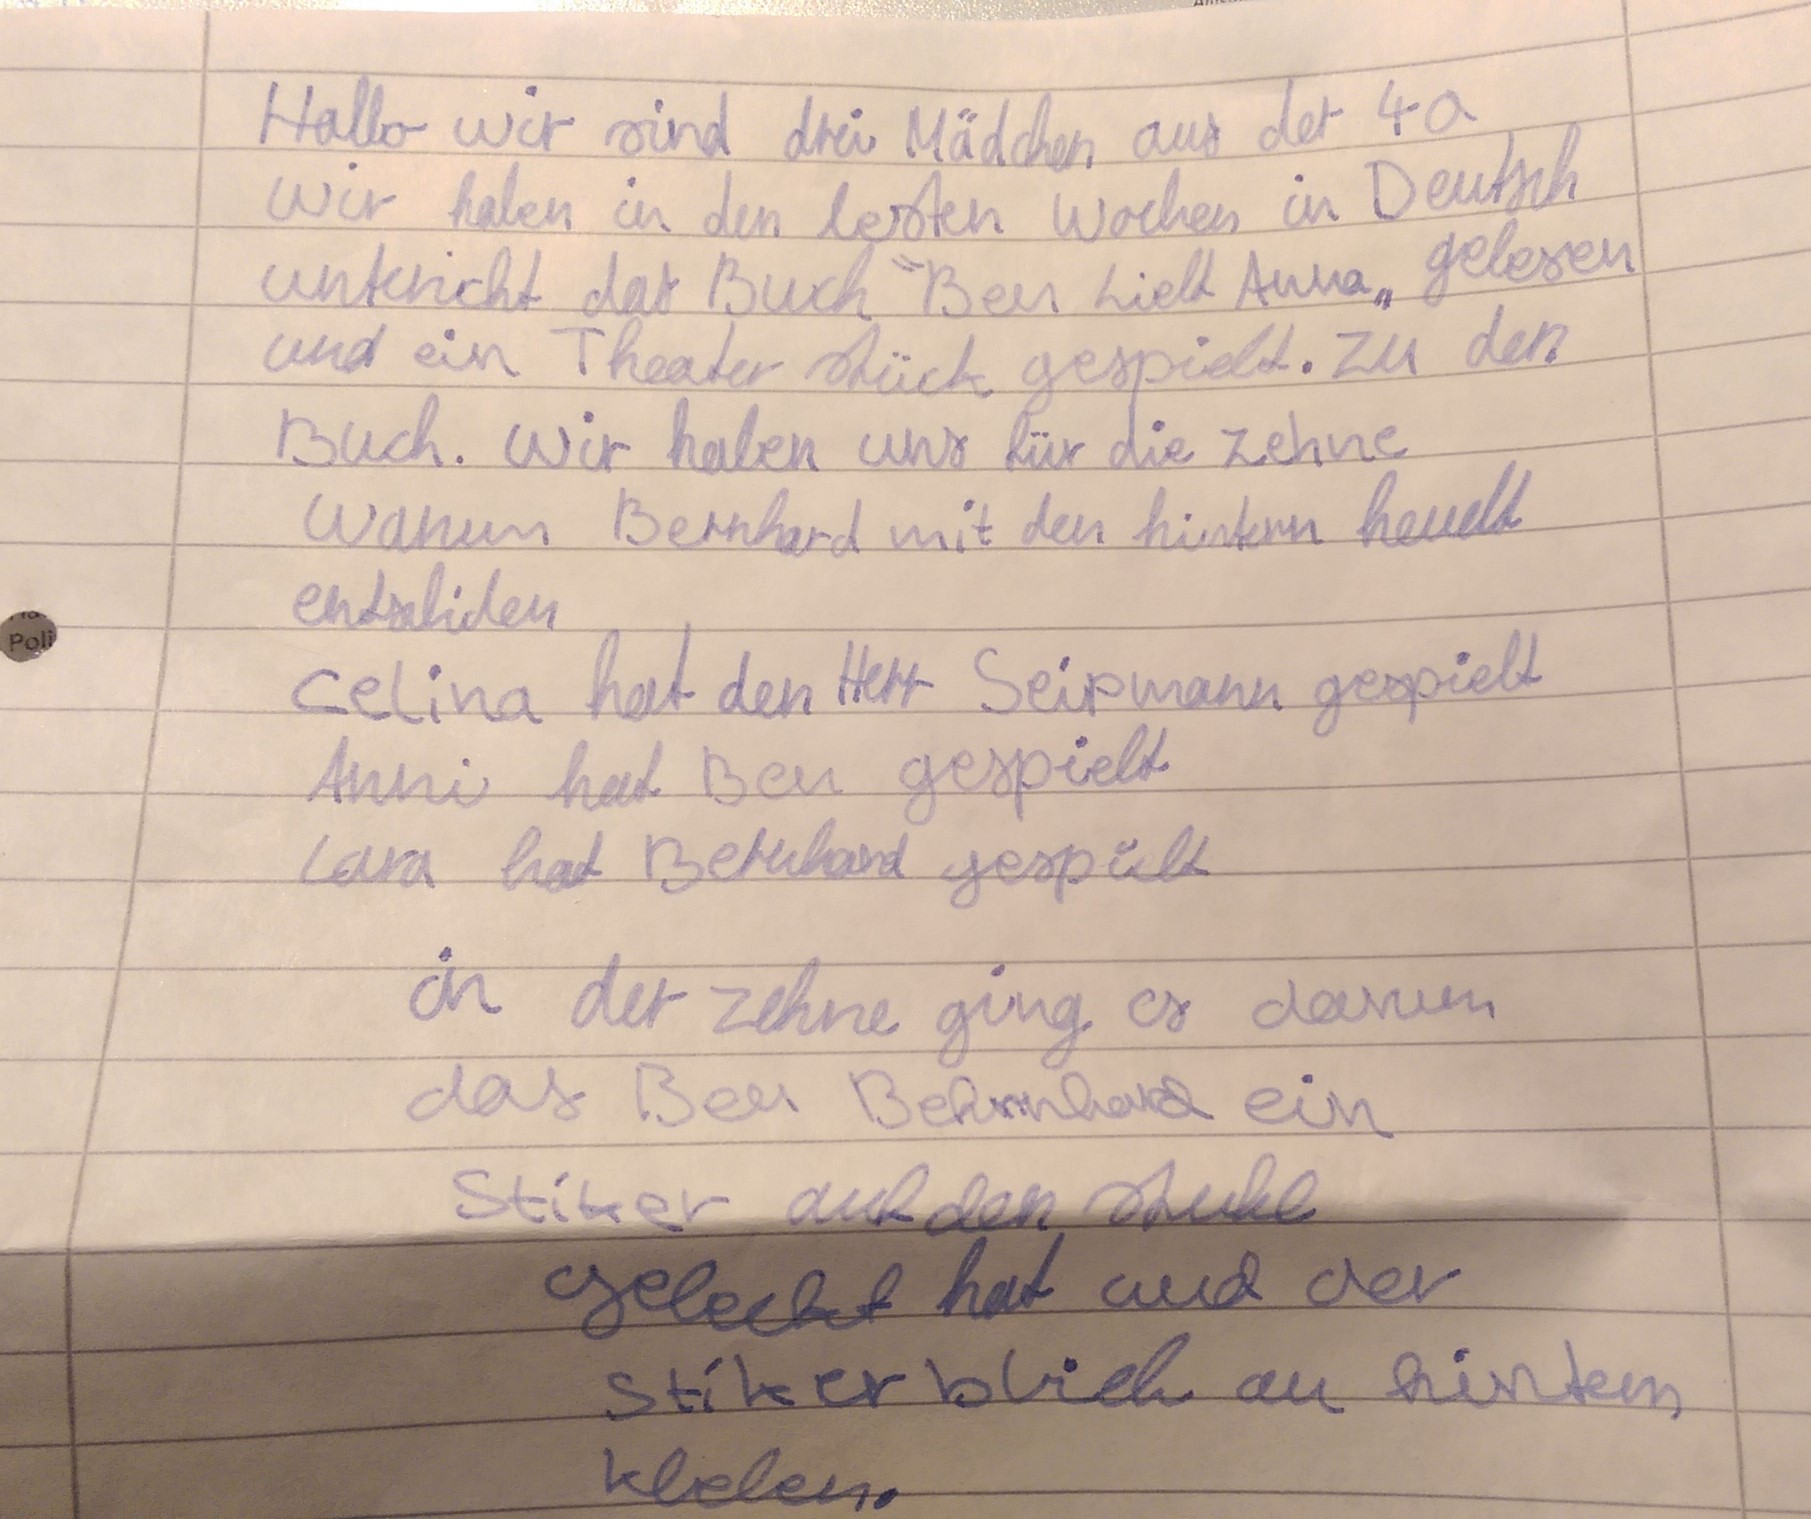 Hallo wir sind drei Mädchen aus der 4a
Wir haben in den lesten Wochen in Deutsch
unterricht das Buch "Ben Liebt Anna„ gelesen
und ein Theater stück gespielt. Zu den
Buch. Wir haben uns für die zehne
Warum Bernhard mit den hintern heult
entschiden
Celina hat den Herr Seipmann gespielt
Anni hat Ben gespielt
Lara hat Bernhard gespielt
in der zehne ging es darum
das Ben Behrnhard ein
Stiker auf den stuhl
gelecht hat und der
stiker blieb an hintern
kleben.
Poli